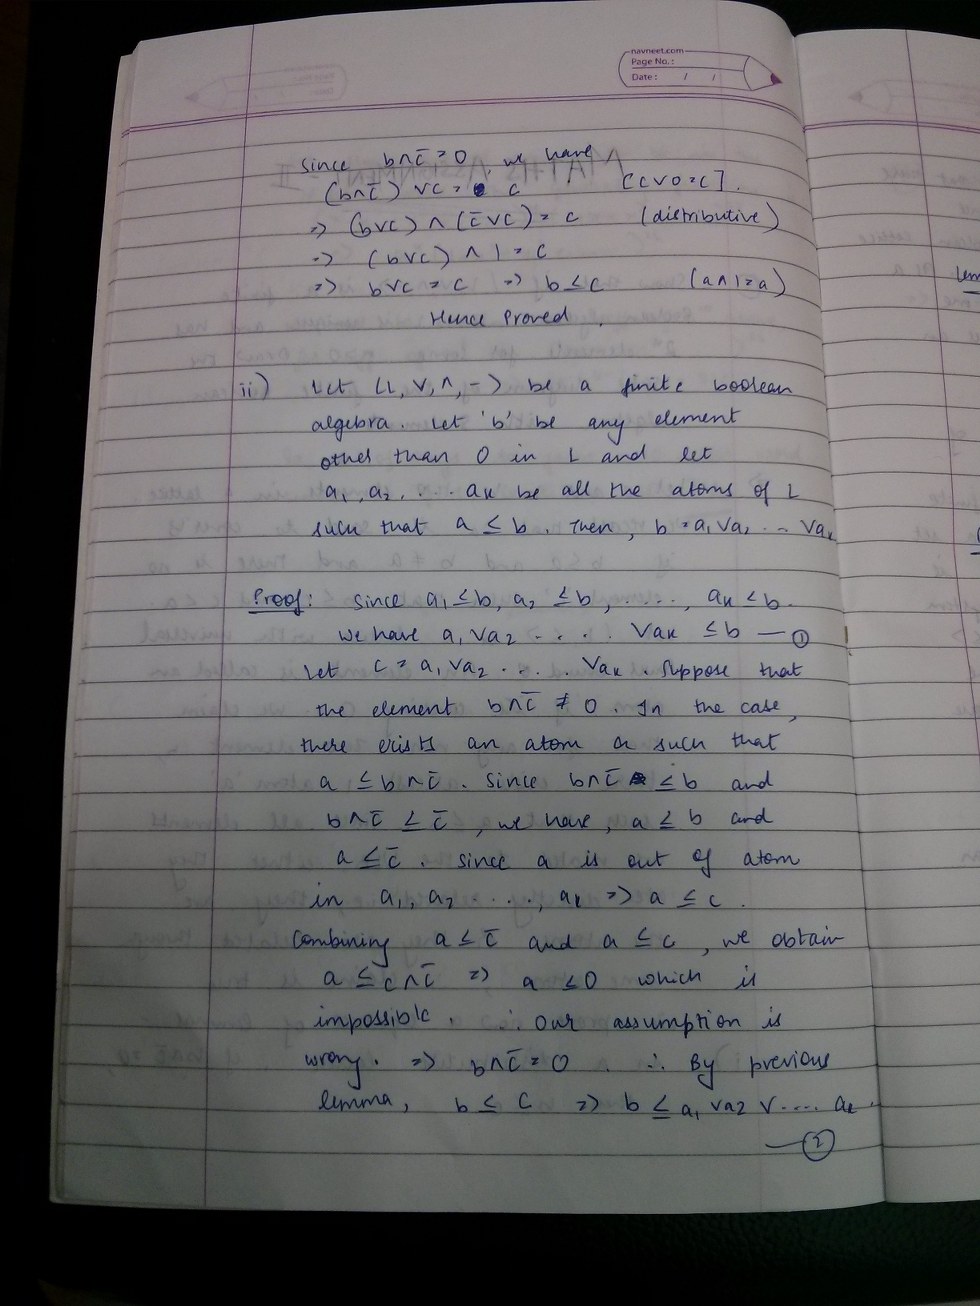 navneet.com
Page No. :
Date : / /
Since b∧c̄ = 0, we have
(b∧c̄) ∨c = c [c∨0=c].
=> (b∨c) ∧ (c̄∨c) = c (distributive)
=> (b∨c) ∧ 1 = c
=> b∨c = c => b ≤ c (a∧1=a)
Hence Proved.
ii) Let (L, ∨, ∧, -) be a finite boolean
algebra. Let 'b' be any element
other than 0 in L and let
a₁, a₂, .... aₖ be all the atoms of L
such that a ≤ b. Then, b = a₁ ∨a₂ ... ∨aₖ
Proof: Since a₁ ≤ b, a₂ ≤ b, ....., aₖ ≤ b.
we have a₁ ∨a₂ ..... ∨aₖ ≤ b — ①
Let c = a₁ ∨a₂ .... ∨aₖ. Suppose that
the element b∧c̄ ≠ 0. In the case,
there exists an atom a such that
a ≤ b∧c̄. Since b∧c̄ ≤ b and
b∧c̄ ≤ c̄, we have, a ≤ b and
a ≤ c̄. Since a is out of atom
in a₁, a₂ ....., aₖ => a ≤ c.
Combining a ≤ c̄ and a ≤ c, we obtain
a ≤ c∧c̄ => a ≤ 0 which is
impossible. ∴ Our assumption is
wrong. => b∧c̄ = 0 . ∴ By previous
lemma, b ≤ c => b ≤ a₁ ∨a2 ∨.... aₖ.
— ②